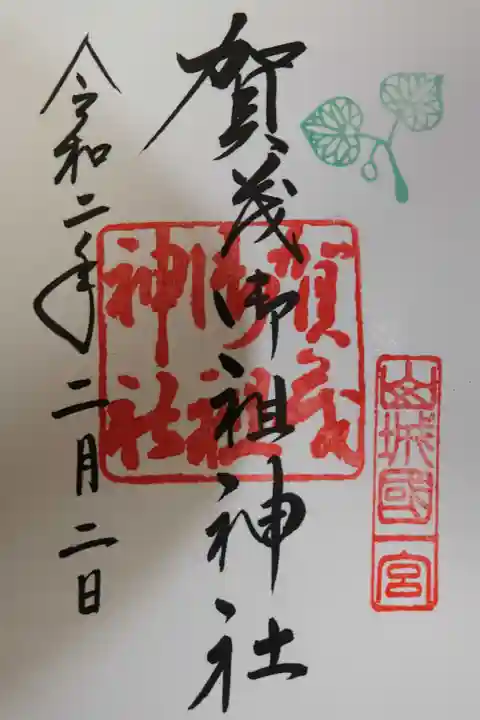 山城國一宮
賀茂御祖神社
賀茂
御祖
神社
令和二年二月二日